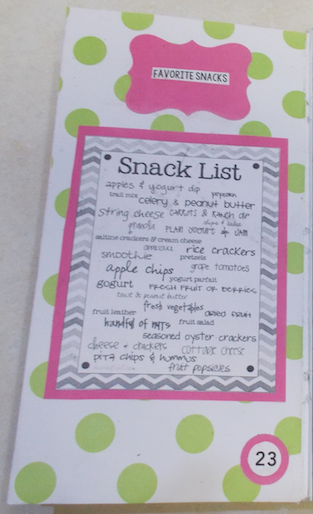 FAVORITE SNACKS
Snack List
apples & yogurt dip
trail mix popcorn
celery & peanut butter
string cheese CARROTS & RANCH DIP
chips & salsa
granola PLAIN YOGURT w/ JAM
saltine crackers & cream cheese
applesauce rice crackers
smoothie pretzels
apple chips grape tomatoes
yogurt parfait
yogurt FRESH FRUIT OR BERRIES
& peanut butter
fresh vegetables
fruit leather DRIED FRUIT
handful of NUTS fruit salad
seasoned oyster crackers
cheese & crackers COTTAGE CHEESE
PITA CHIPS & HUMMUS
fruit popsicles
23